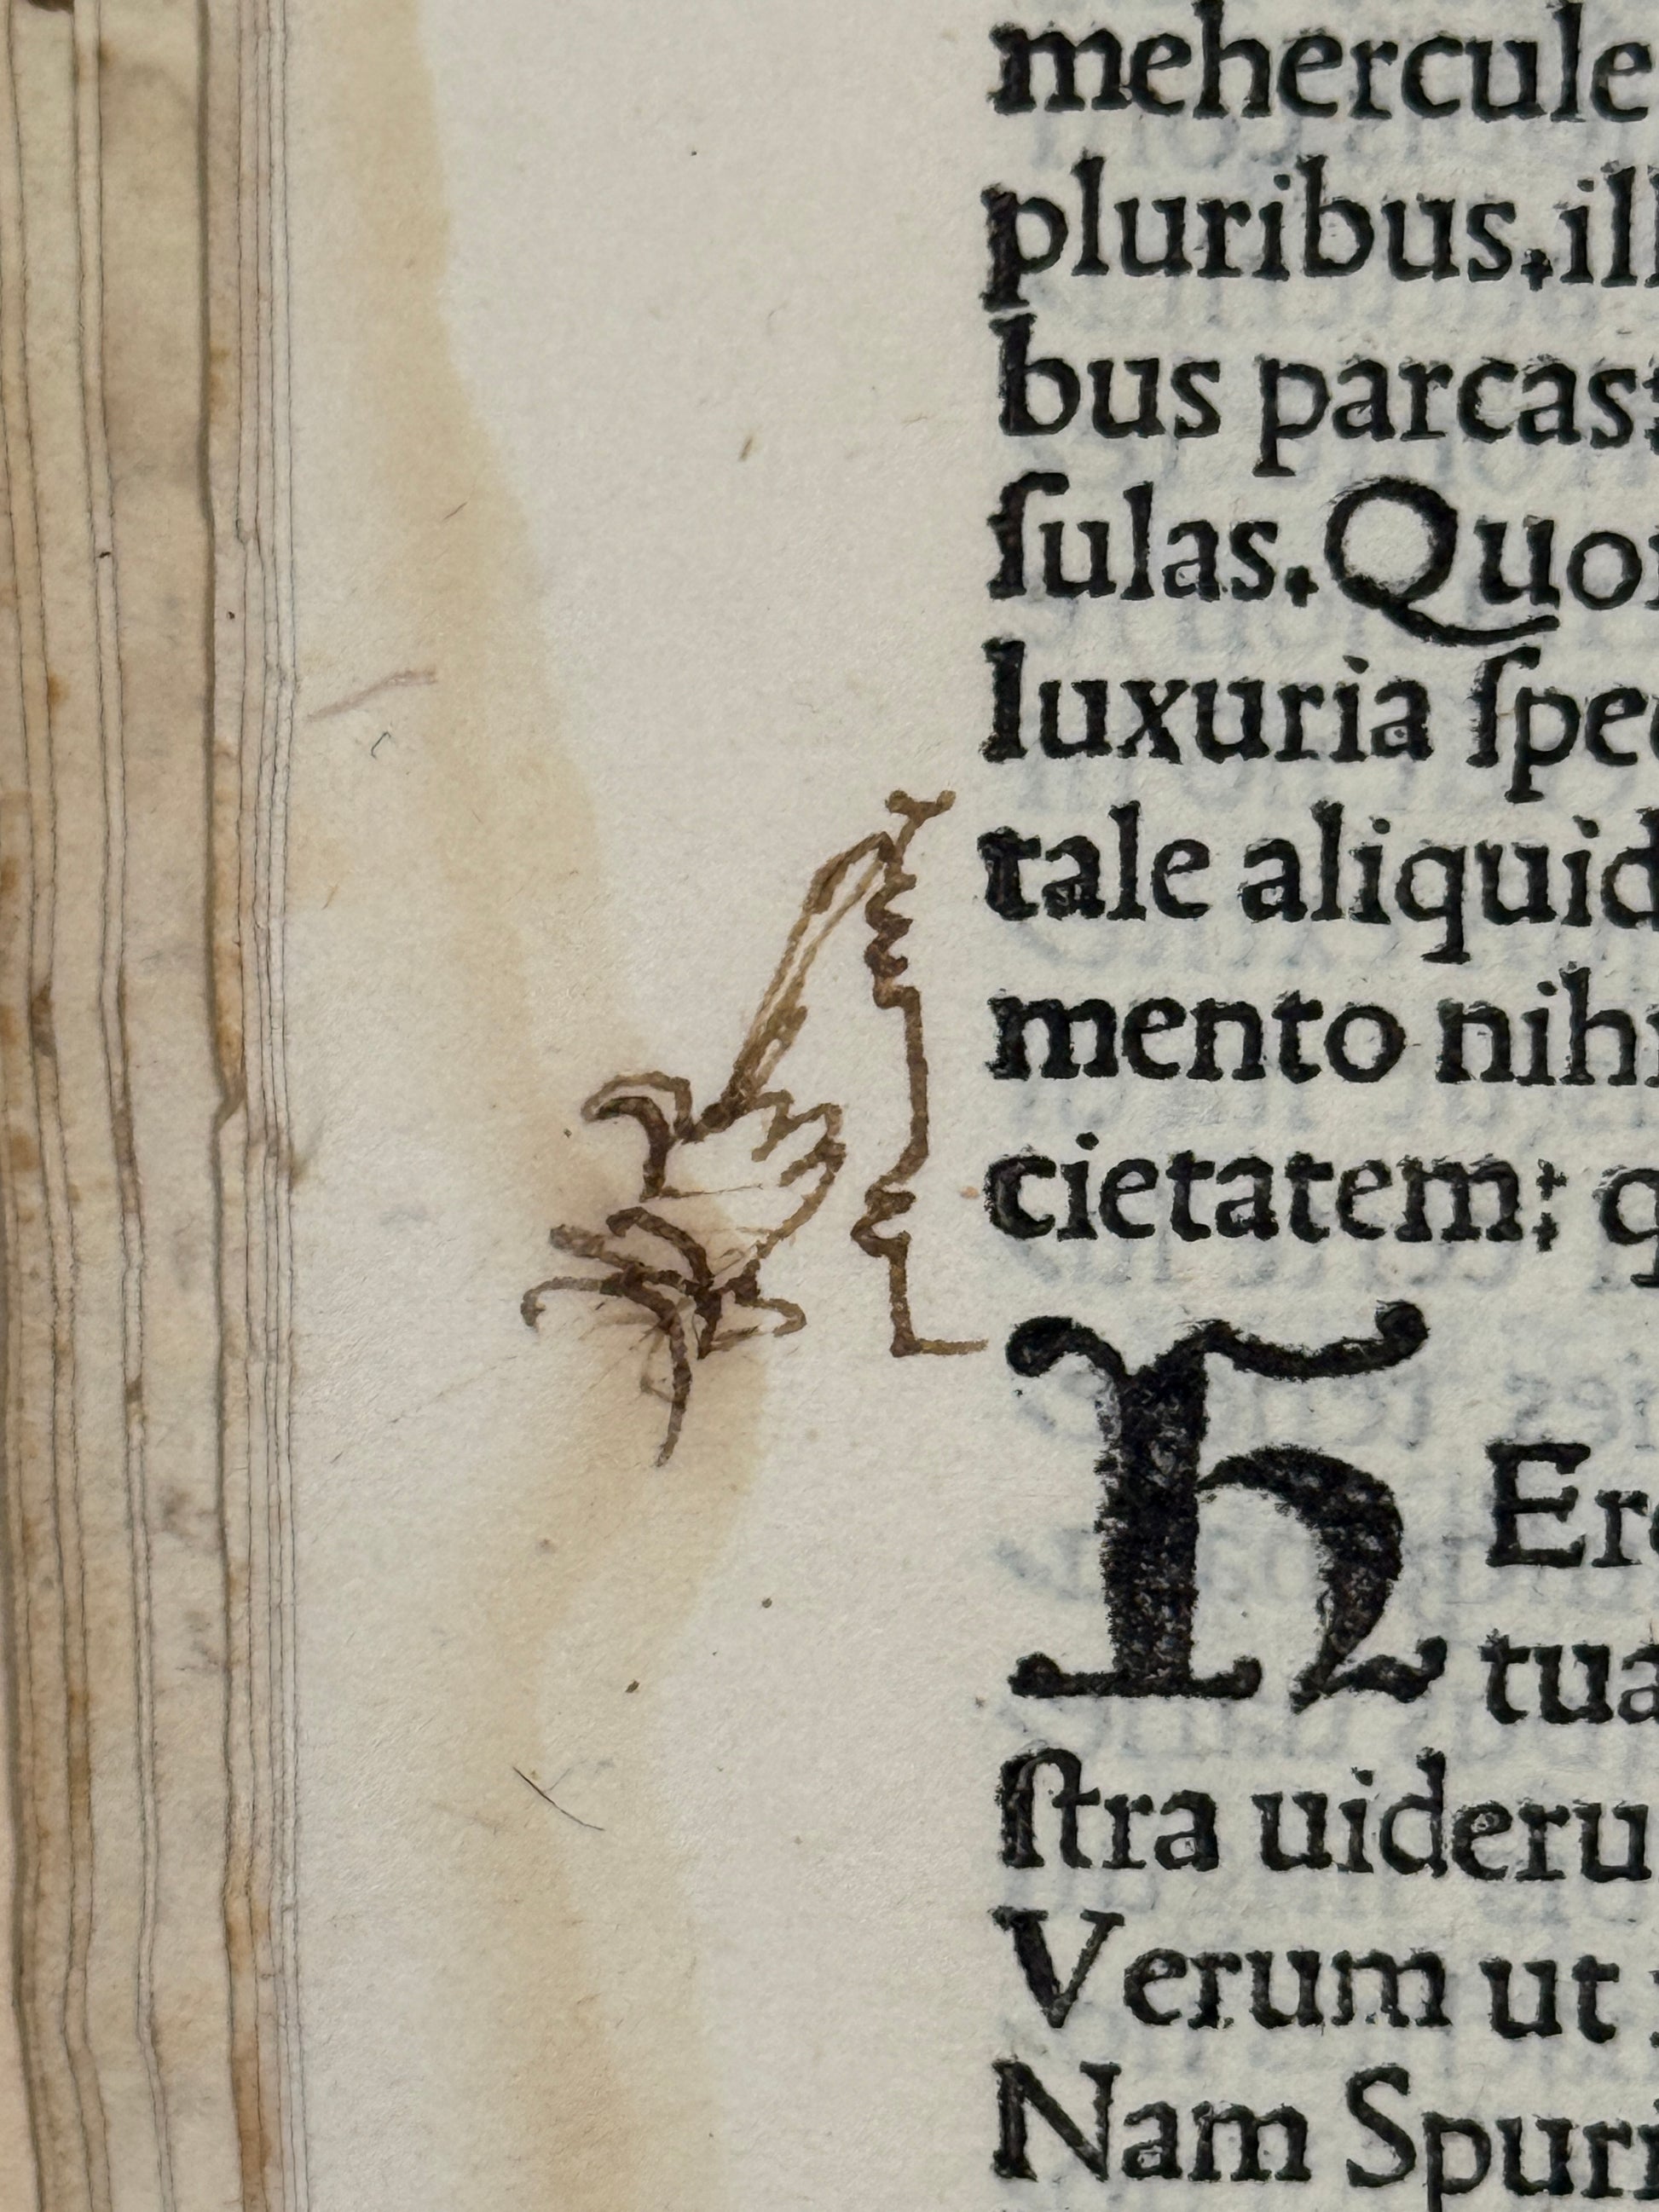 mehercule
pluribus.ill
bus parcas
ſulas.Quo
luxuria ſpe
tale aliquid
mento nih
cietatem: q
H Er
tua
ſtra uideru
Verum ut
Nam Spuri